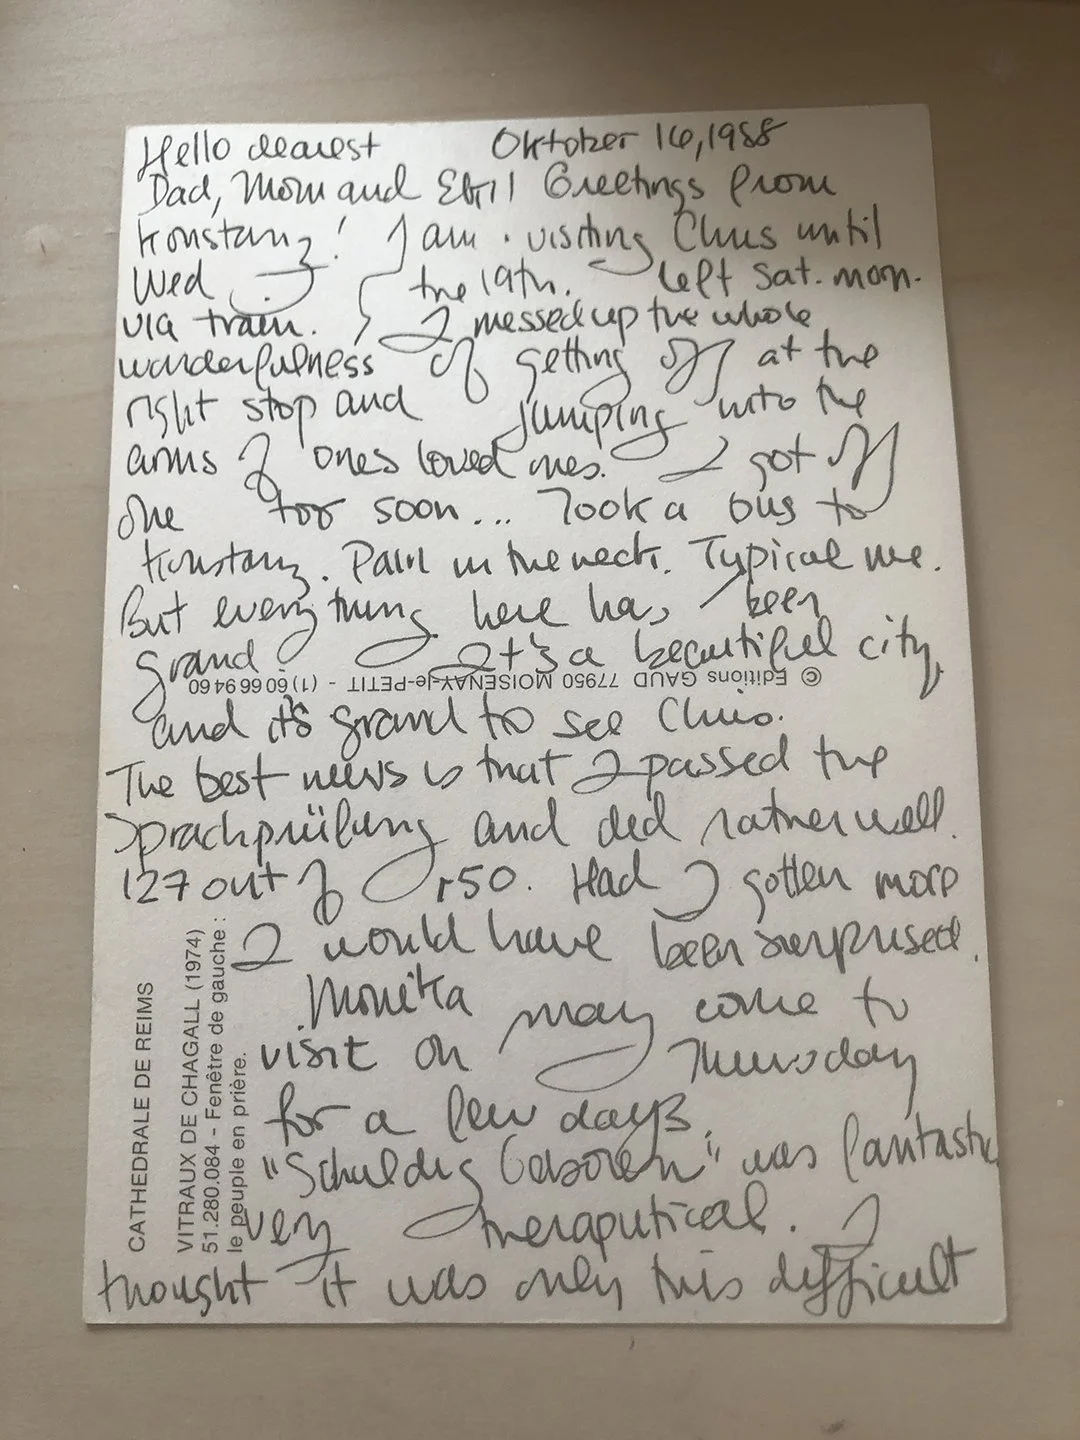 Hello dearest Oktober 16, 1988
Dad, Mom and Greetings from
Konstanz! I am visiting Chris until
Wed the 19th. left Sat. morn.
via train. I messed up the whole
wonderfulness of getting off at the
right stop and jumping into the
arms of ones loved ones. I got off
one too soon... Took a bus to
Konstanz. Pain in the neck. Typical me.
But everything here has been
grand. It's a beautiful city,
© Editions GAUD 77950 MOISENAY-le-PETIT - (1) 60 66 94 60
and it's grand to see Chris.
The best news is that I passed the
Sprachprüfung and did rather well.
127 out of 150. Had I gotten more
I would have been surprised.
Monika may come to
visit on Thursday
for a few days.
"Schuldig Geboren" was fantastic
very theraputical. I
thought it was only this difficult
CATHEDRALE DE REIMS
VITRAUX DE CHAGALL (1974)
51.280.084 - Fenêtre de gauche :
le peuple en prière.